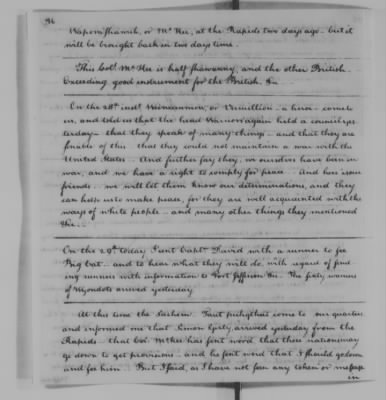 96
Wapomshamih, or Mc Kee, at the Rapids two days ago - but it
will be brought back in two days time.
This Col. McKee is half Shawanny, and the other British
Exceeding good instrument for the British &c
On the 28th inst. or Vermillion - a heroe - come to
us, and told us that the head Warriors again held a council yes
terday - that they speak of many things - and that they are
of this that they could not maintain a war with the
United States.. And further say they, we ourselves have been in
war, and we have a right to for peace.. And here is our
friends .. we will let them know our determinations, and they
can help us to make peace, for they are well acquainted with the
ways of white people - and many other things they mentioned
&c...
On the 29th today I sent Capt. David with a runner to see
Big Cat - and to hear what they will do, with regard of send
ing runners with information to Fort Jefferson &c. The sixty warriors
of Wyondots arrived yesterday
At this time the Sachem come to our quarters
and informed me that Simon Girty, arrived yesterday from the
Rapids - that Col. McKee has sent word that these nations may
go down to get provisions - and he sent word that I should go down
and see him.. But I said, as I have not seen any token or message
in